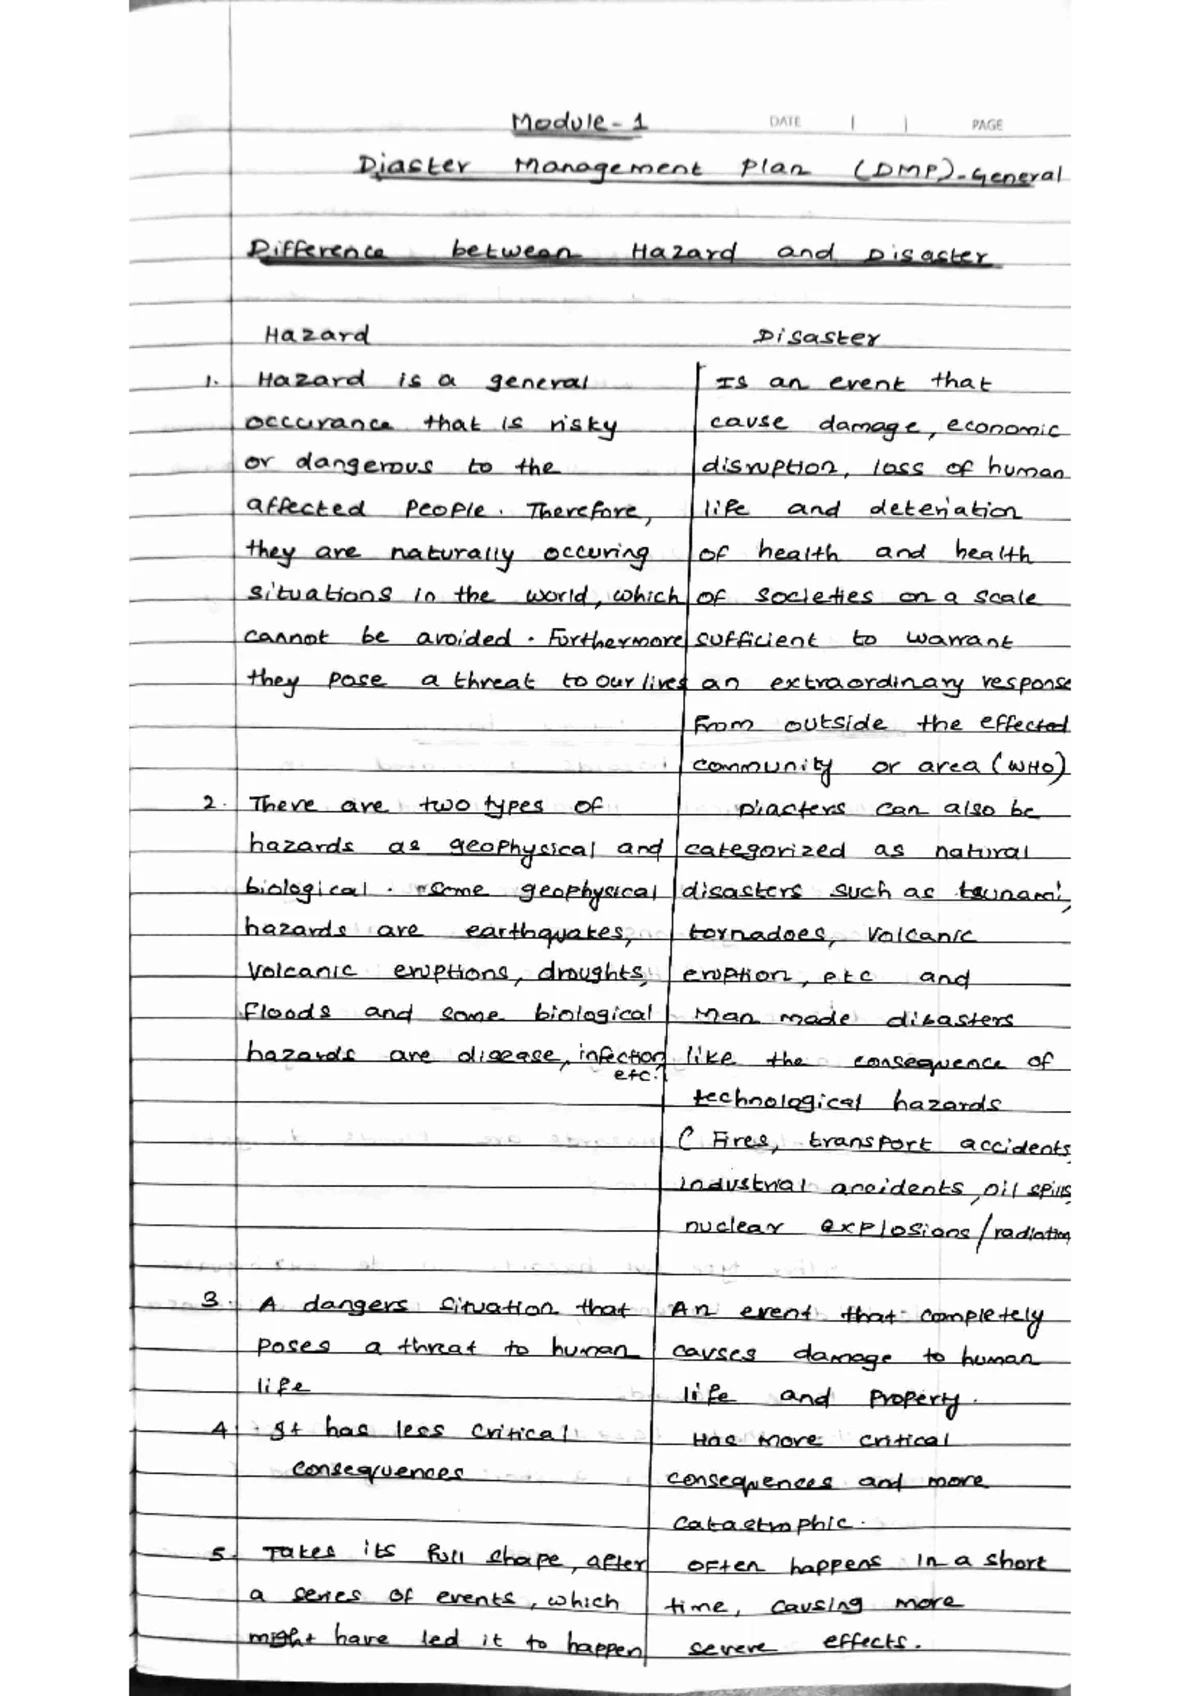 Module-1
DATE | | PAGE
Diaster Management Plan (DMP)-General
Difference between Hazard and Disaster
Hazard
1. Hazard is a general
occurance that is risky
or dangerous to the
affected people. Therefore,
they are naturally occuring
situations in the world, which
cannot be avoided. Furthermore
they pose a threat to our lives
2. There are two types of
hazards as geophysical and
biological. some geophysical
hazards are earthquakes,
volcanic eruptions, droughts,
floods and some biological
hazards are disease, infection,
etc.
3. A dangers situation that
poses a threat to human
life
4. It has less critical
consequences
5. Takes its full shape, after
a series of events, which
might have led it to happen
Disaster
Is an event that
cause damage, economic
disruption, loss of human
life and deteriation
of health and health
of societies on a scale
sufficient to warrant
an extraordinary response
from outside the effected
community or area (WHO)
Diasters can also be
categorized as natural
disasters such as tsunami,
tornadoes, volcanic
eruption, etc and
Man made disasters
like the consequence of
technological hazards
( Fires, transport accidents,
industrial accidents, oil spills,
nuclear explosions/radiation
An event that completely
causes damage to human
life and property.
Has more critical
consequences and more
catastrophic.
Often happens in a short
time, causing more
severe effects.